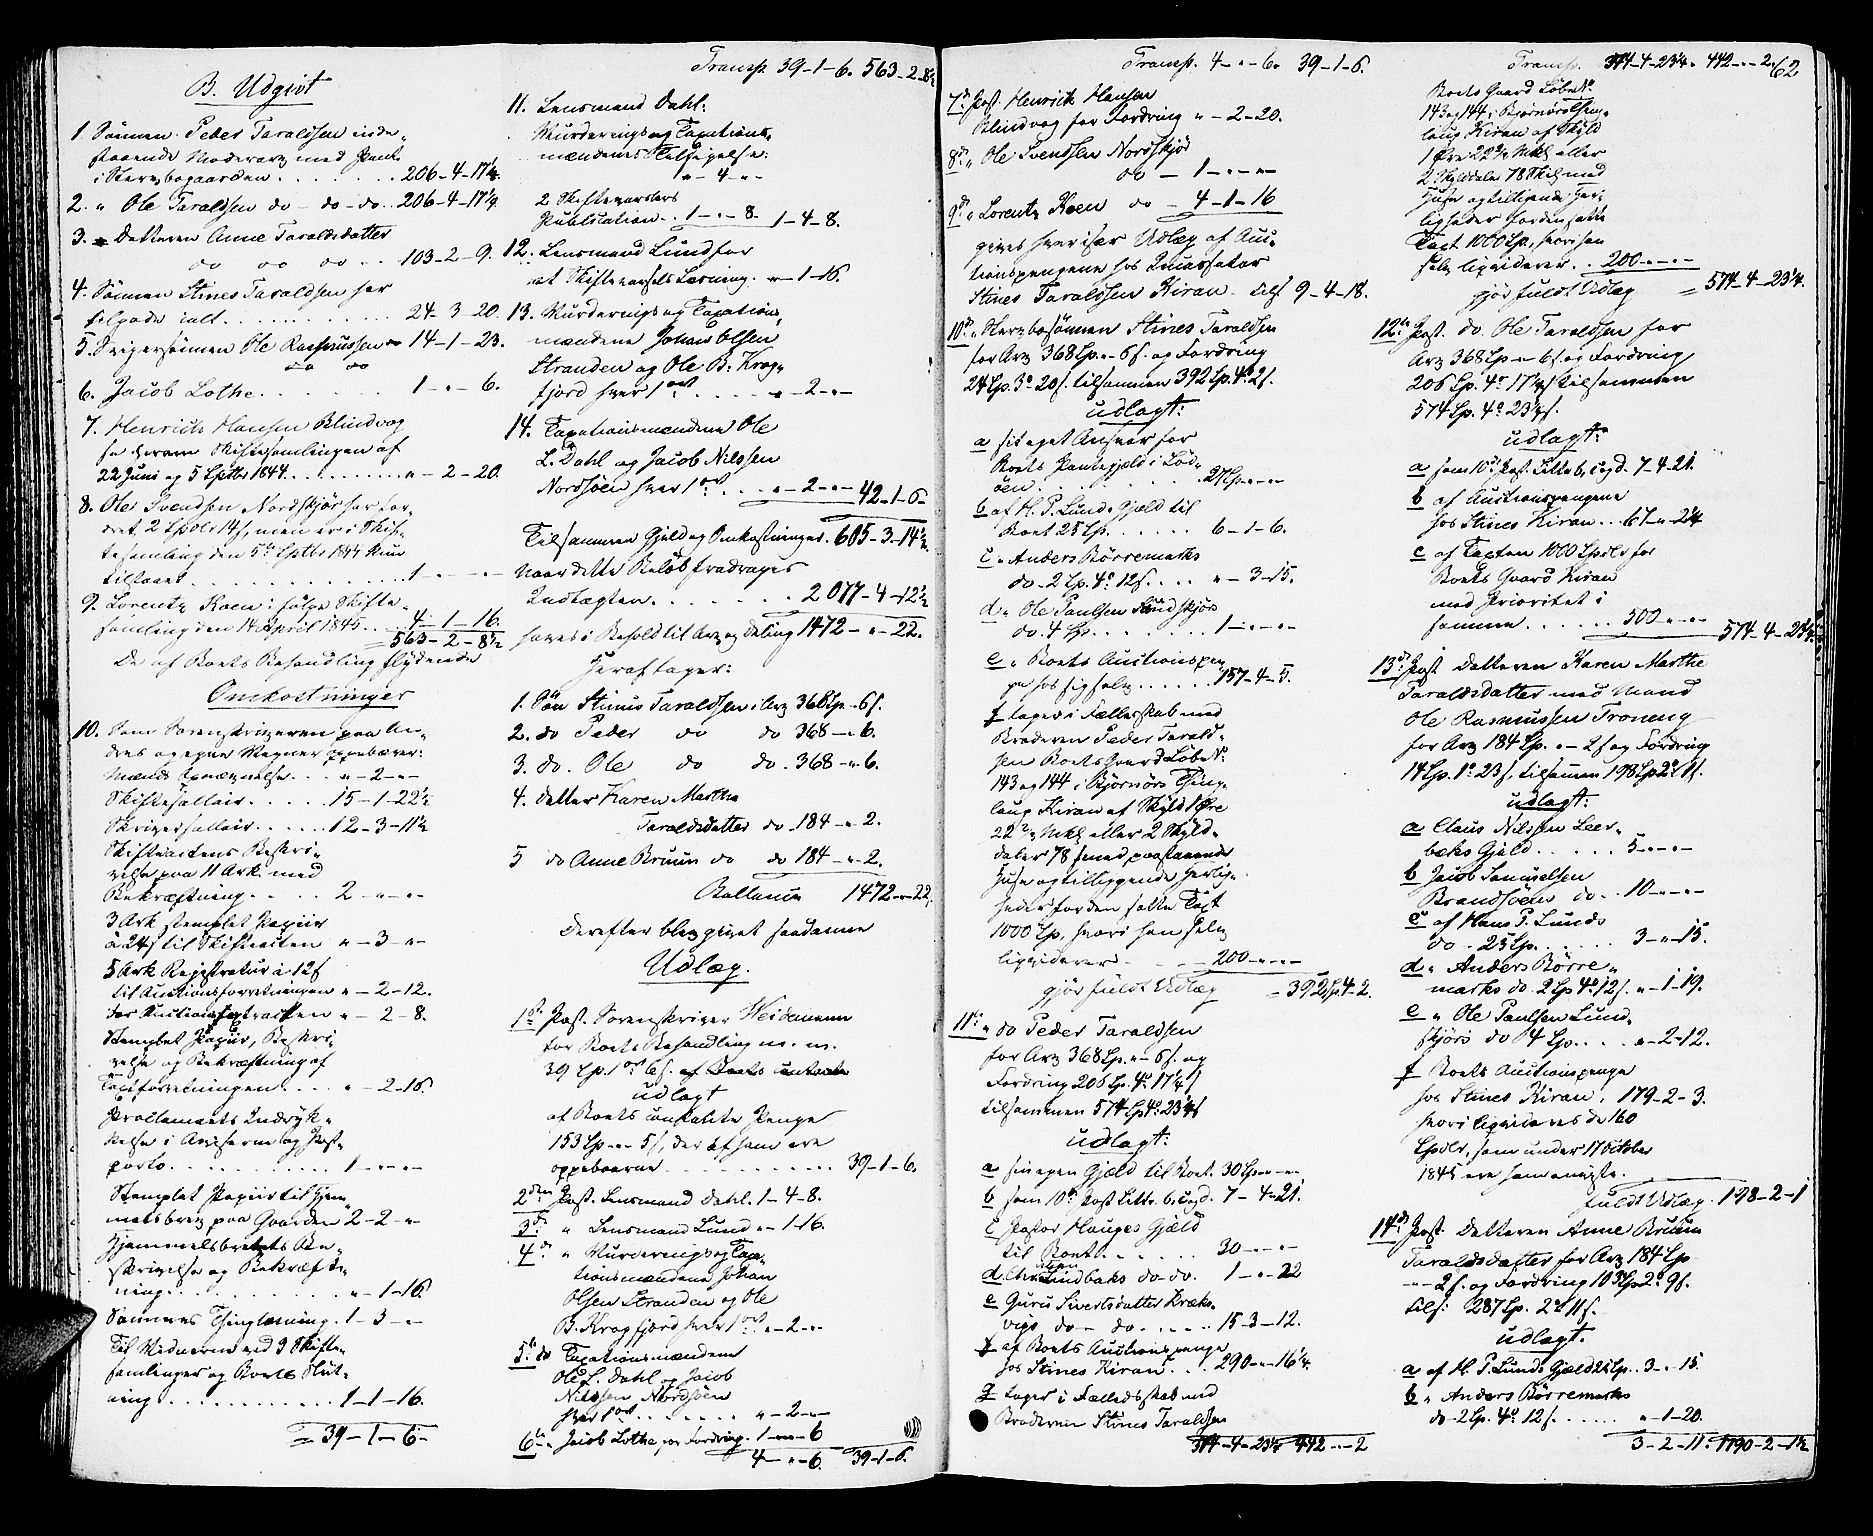 B. Udgivt
1. Sønnen Peder Taraldsen inde-
staaende Moderarv med Pant
i Stervbogaarden . . . . . . . 206-4-17¼
2. " Ole Taraldsen do - do - do . . 206-4-17¼
3. Datteren Anne Taraldsdatter
do do do . . 103-2-9.
4. Sønnen Stines Taraldsen har
tilgode ialt . . . . . . . . . 24-3-20.
5. Svigersønnen Ole Rasmussen 14-1-23.
do do
6. Jacob Lothe . . . . . . . 1-"-6.
7. Henrich Hansen Blindvog
Skiftesamlingen af
22 Juni og 5 Septbr 1844 . . . . . . "-2-20.
8. Ole Svendsen Nordskjør har for-
dret 2 Spdlr 14 s, men er i Skif-
tesamling den 5te Septbr 1844 kun
tilstaaet . . . . . . . . . . 1-"-"
9. Lorentz Koen i følge Skifte-
samling den 14 April 1845 . . . 4-1-16.
563-2-8½
De af Boets Behandling flydende
Omkostninger
10. Som Sorenskriveren paa An-
dres og egne Vegner oppebærer:
Mænds Opnævnelse . . . "-2-"
Skiftesallair . . . . . 15-1-22½
Skriversallair . . . . . 12-3-11½
Skifteactens Beskri-
velse paa 11 Ark med
Bekræftning . . . . 2-"-"
3 Ark stemplet Papiir
à 24 s til Skifteacten "-3-"
5 Ark Registratur à 12 s
til Auctionsforretningen "-2-12.
for Auctionsextracten "-2-8.
Stemplet Papiir, Beskri-
velse og Bekræftning af
Taxtforretningen . . . . "-2-16.
Proclamaets Indryk-
kelse i Aviserne og Post-
porto . . . . . . . . . . 1-"-"
Stemplet Papiir til Hjem-
melsbrev paa Gaarden 2-2-"
Hjemmelsbrevets Be-
skrivelse og Bekræft-
ning . . . . . . . . . "-1-16.
Sammes Thinglæsning 1-3-"
Til Vidnerne ved 9 Skifte-
samlinger og Boets Slut-
ning . . . . . . . . . . 1-1-16.
= 39-1-6-
Transp. 39-1-6. 563-2-8½
11. Lensmand Dahl:
Vurderings og Taxations-
mændenes Tilsigelse:
"-4-"
2 Skiftevarslers
Publikation . . 1-"-8. 1-4-8.
12. Lensmand Lund for
et Skiftevarsels Læsning . "-1-16.
13. Vurderings og Taxations-
mændene Johan Olsen
Stranden og Ole B. Krog-
fjord hver 1 ort . . . . . "-2-"
14. Taxationsmændene Ole
L. Dahl og Jacob Nilssen
Nordsøen hver 1 ort . . . "-2-"- 42-1-6-
Tilsammen Gjeld og Omkostninger . 605-3-14½
Naar dette Beløb fradrages
Indtægten . . . . . . . . 2077-4-12½
haves i Behold til Arv og deling 1472-"-22.
Heraf tager:
1. Søn Stinus Taraldsen i Arv 368 Sp-"-6 s.
2. do Peder do do 368-"-6.
3. do. Ole do do. 368-"-6.
4. datter Karen Marthe
Taraldsdatter do 184-"-2.
5 do Anne Bruun do do 184-"-2.
Ballance 1472-"-22.
Derefter blev givet saadanne
Udlæg.
1ste Post. Sorenskriver Heidemann
for Boets Behandling m. m.
39 Sp. 1 ort 6 s. af Boets contante
udlagt
af Boets contante Penge
153 Sp-"-5 s, der af ham ere
oppebaarne . . . . . . . . . . . . 39-1-6.
2den Post. Lensmand Dahl. 1-4-8.
3die " Lensmand Lund "-1-16.
4de " Vurderings og Tax-
tionsmændene Johan
Olsen Stranden og Ole
B. Krogfjord hver 1 ort "-2-"
5te do Taxationsmændene
Ole L. Dahl og Jacob
Nilssen Nordsøen
hver 1 ort . . . . . . . "-2-"
6te " Jacob Lothe for Fordring. 1-"-6
4-"-6. 39-1-6.
Transp. 4-"-6. 39-1-6.
7de Post. Henrich Hansen
Blindvog for Fordring "-2-20.
8de " Ole Svendsen Nordskjør
do - 1-"-"
9de " Lorentz Koen do - 4-1-16
gives hver især Udlæg af Auc-
tionspengene hos Incassator
Stines Taraldsen Kiran - tils 9-4-18.
10de " Stervbosønnen Stines Taraldsen
for Arv 368 Sp.-"-6 s. og Fordring
24 Sp. 3 o 20 s. tilsammen 392 Sp. 4 o 2 s.
udlagt:
a sit eget Ansvar for
Boets Pantegjæld i Lod-
øen . . . . . . . . . . . 27 Sp-"-"
b af H. P. Lunds Gjæld til
Boet 25 Sp. . . . . . 6-1-6.
c " Anders Börremarks
do - 2 Sp. 4 o 12 s. . . . "-3-15.
d " Ole Paulsen Sundskjørs
do. 4 Sp. . . . . . . . 1-"-"
e " Boets Auctionspen-
ge hos sig selv . . . . . . 157-4-5.
f tages i Fællesskab med
Broderen Peder Tarald-
sen Boets Gaard Løbe No.
143 og 144 i Bjørnørs Thing-
laug Kiran af Skyld 1 Øre
22 2/7 Mkl eller 2 Skyld-
daler 78 s med paastaaende
Huse og tilliggende Herlig-
heder for den satte Taxt
1000 Sp, hvori han selv
liqviderer . . . 200-"-"
gjør fuldt Udlæg = 392 Sp. 4-2.
11te " do Peder Taraldsen
for Arv 368 Sp.-"-6 s. og
Fordring 206 Sp. 4 o 17¼ s
tilsammen 574 Sp 4 o 23¼ s
udlagt:
a sin egen Gjæld til Boet. 30 Sp-"-"
b som 10de Post Littr. b, c og d. 7-4-21.
c Pastor Hauges Gjæld
til Boet . . . . . . . 30-"-"
d Christian Lindbaks do do. 1-"-22
e Guru Sivertsdatter Kræks-
vigs do - do . . . . . 15-3-12.
f af Boets Auctionspenge
hos Stines Kiran . . 290-"-16¼
g tages i Fælledsskab med
Broderen Stines Taraldsen
374-4-23¼ 442-"-2
Transp. 374-4-23¼. 442-"-2. 62
Boets Gaard Løbe No.
143 og 144 i Bjørnørs Thing-
laug Kiran af Skyld
1 Øre 22 2/7 Mkl eller
2 Skylddaler 78 Skil med
Huse og tilliggende Her-
ligheder for den satte
Taxt 1000 Sp, hvori han
selv liqviderer . . 200-"-"
gjør fuldt Udlæg = 574-4-23¼.
12te Post. do. Ole Taraldsen for
Arv 368 Sp-"-6 s. og Fordring
206 Sp. 4 o 17¼ s tilsammen
574 Sp. 4 o 23¼ s.
udlagt:
a som 10de Post Littr b, c og d. 7-4-21.
b af Auctionspengene
hos Stines Kiran . . 67-"-2¼
c af Taxten 1000 Spdlr for
Boets Gaard Kiran
med Prioritet i
samme . . . . . . 500-"-" 574-4-23¼.
13de Post. Datteren Karen Marthe
Taraldsdatter med Mand
Ole Rasmussen Troneng
for Arv 184 Sp. "-2 s og Fordring
14 Sp. 1 o 23 s. tilsamen 198 Sp 2 o 1 s.
udlagt:
a Claus Nilssen Leer-
bæks Gjeld . . . . . . 5-"-"
b Jacob Samuelsen
Brandsöens do . 10-"-"
c af Hans P. Lunds
do - 25 Sp . . . . . . 3-"-15.
d " Anders Börre-
marks do. 2 Sp 4 o 12 s. "-1-19.
e " Ole Paulsen Sund-
skjørs do 4 Sp. . . . "-2-12.
f Boets Auctionspenge
hos Stines Kiran . 179-2-3.
hvori liqvideres de 160
Spdlr, som under 17 October
1845 ere ham anviste.
fuldt Udlæg. 198-2-1
14de Post. Datteren Anne Bruun
Taraldsdatter for Arv 184 Sp
-"-2 s. og Fordring 103 Sp 2 o 9 s.
tils: 287 Sp. 2 o 11 s.
udlagt:
a af H. P. Lunds Gjæld 25 Sp. . 3-"-15.
b " Anders Börremarks
do - 2 Sp. 4 o 12 s. . . . . . "-1-20.
3-2-11. 1790-2-1½